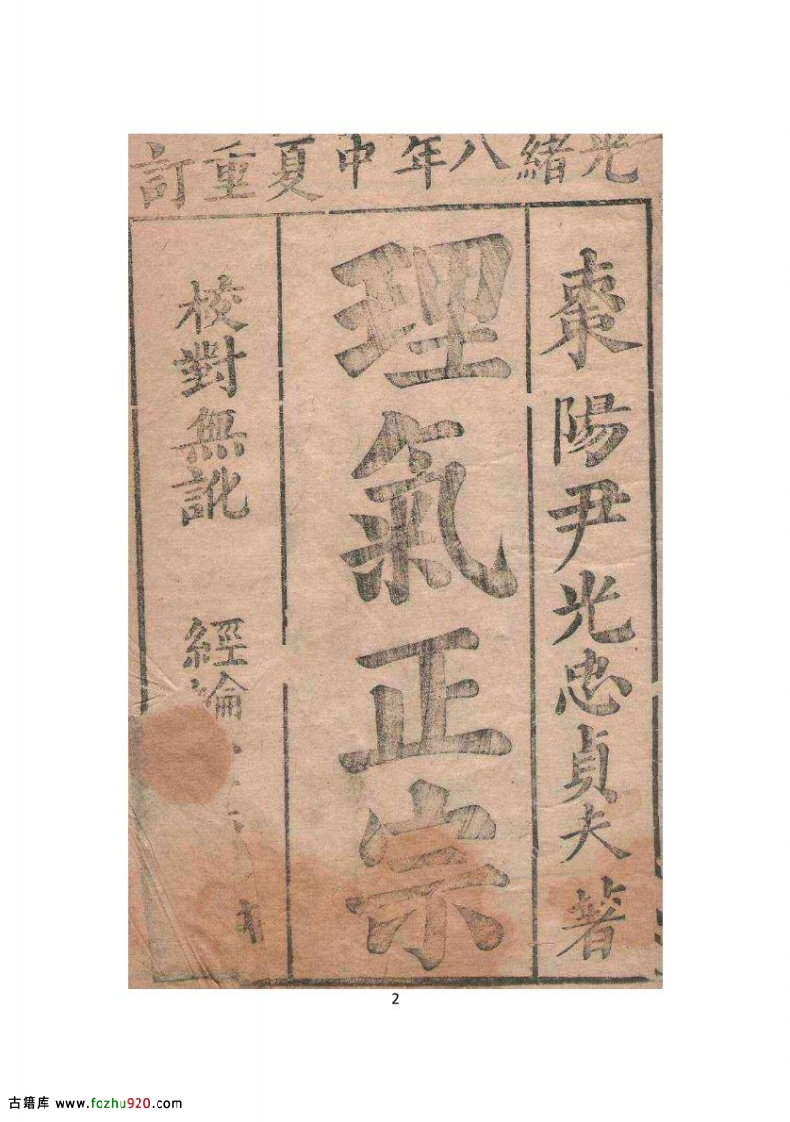 光緒八年中夏重訂
棗陽尹光忠貞夫著
理氣正宗
校對無訛 經綸
2
古籍库 www.fozhu920.com